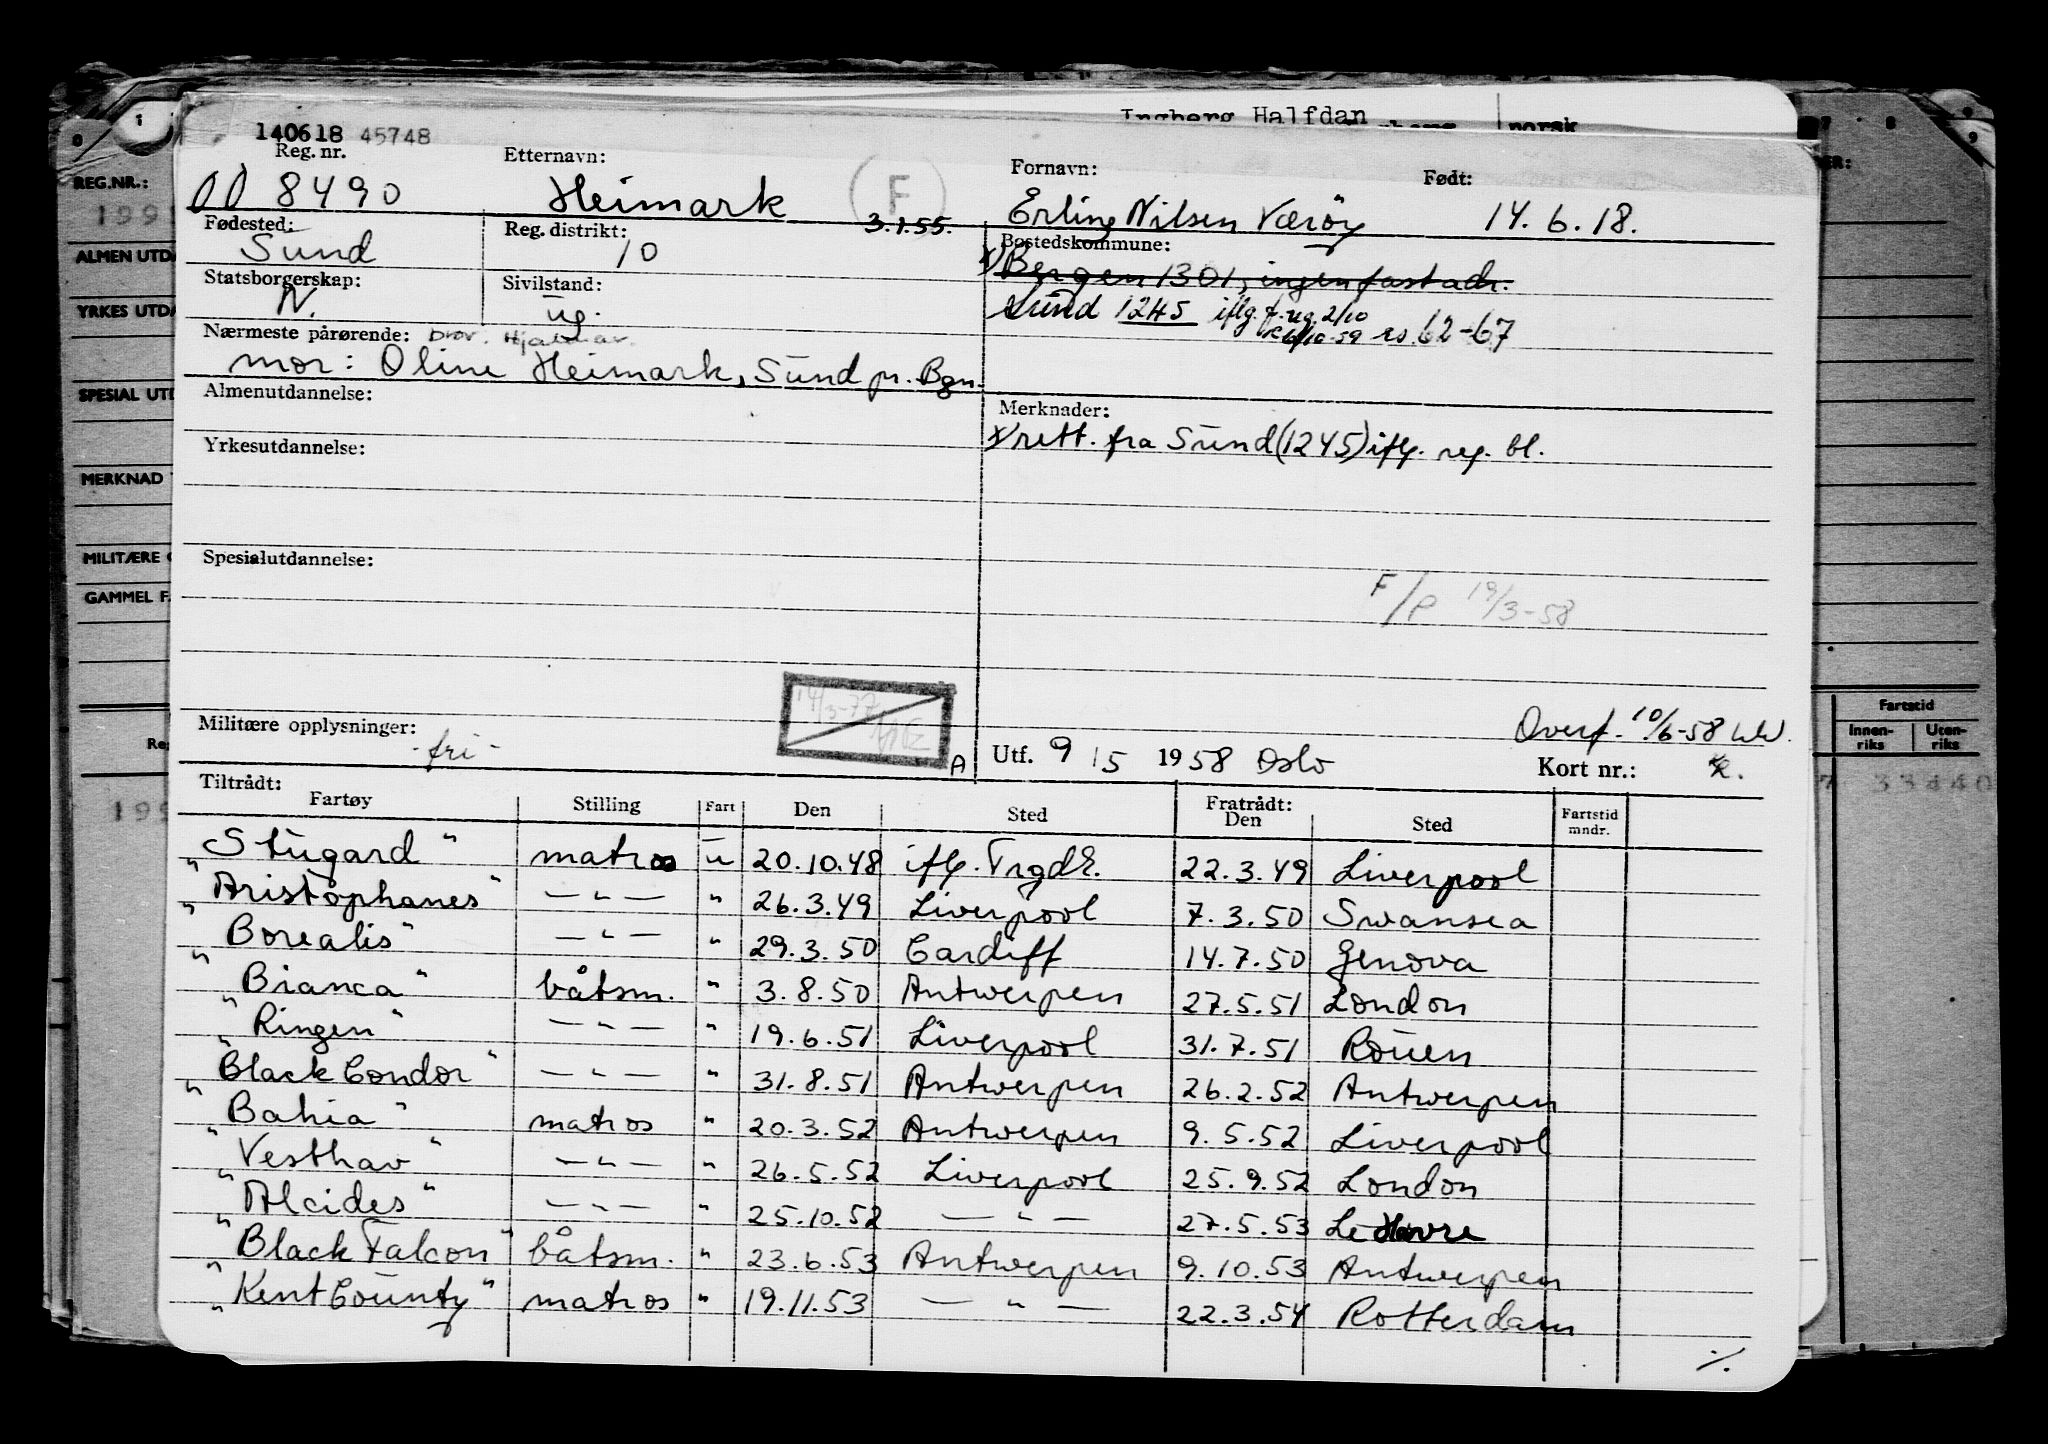 Ingberg Halfdan
norsk
140618 45748
Reg. nr. Etternavn: Fornavn: Født:
00 8490 Heimark F 3.1.55. Erling Nilsen Værøy 14.6.18.
Fødested: Reg. distrikt: Bostedskommune:
Sund 10 x) Bergen 1301, ingen fast adr.
Statsborgerskap: Sivilstand:
N. ug. Sund 1245 iflg. f.ug. 2/10
10-59 rs 62-67
Nærmeste pårørende: bror: Hjalmar
mor: Oline Heimark, Sund pr. Bgn.
Almenutdannelse: Merknader:
x) rett. fra Sund (1245) iflg. reg. bl.
Yrkesutdannelse:
Spesialutdannelse:
F/P 19/3-58
14/3-77
Militære opplysninger: Overf. 10/6-58
-fri- A Utf. 9/5 1958 Oslo Kort nr.:
Tiltrådt: Fratrådt:
Fartøy Stilling Fart Den Sted Den Sted Fartstid mndr.
"Stugard" matros u 20.10.48 iflg. Trgd E. 22.3.49 Liverpool
"Aristophanes" — " — " 26.3.49 Liverpool 7.3.50 Swansea
"Borealis" — " — " 29.3.50 Cardiff 14.7.50 Genova
"Bianca" båtsm. " 3.8.50 Antwerpen 27.5.51 London
"Ringen" — " — " 19.6.51 Liverpool 31.7.51 Rouen
"Black Condor" — " — " 31.8.51 Antwerpen 26.2.52 Antwerpen
"Bahia" matros " 20.3.52 Antwerpen 9.5.52 Liverpool
"Vesthav" — " — " 26.5.52 Liverpool 25.9.52 London
"Alcides" — " — " 25.10.52 — " — 27.5.53 Le Havre
"Black Falcon" båtsm. " 23.6.53 Antwerpen 9.10.53 Antwerpen
"Kent County" matros " 19.11.53 — " — 22.3.54 Rotterdam
./.
REG.NR.:
199
ALMEN UTDA
YRKES UTDA
SPESIAL UTD
MERKNAD
MILITÆRE
GAMMEL F.
Fartstid
Innenriks Utenriks
7 33440